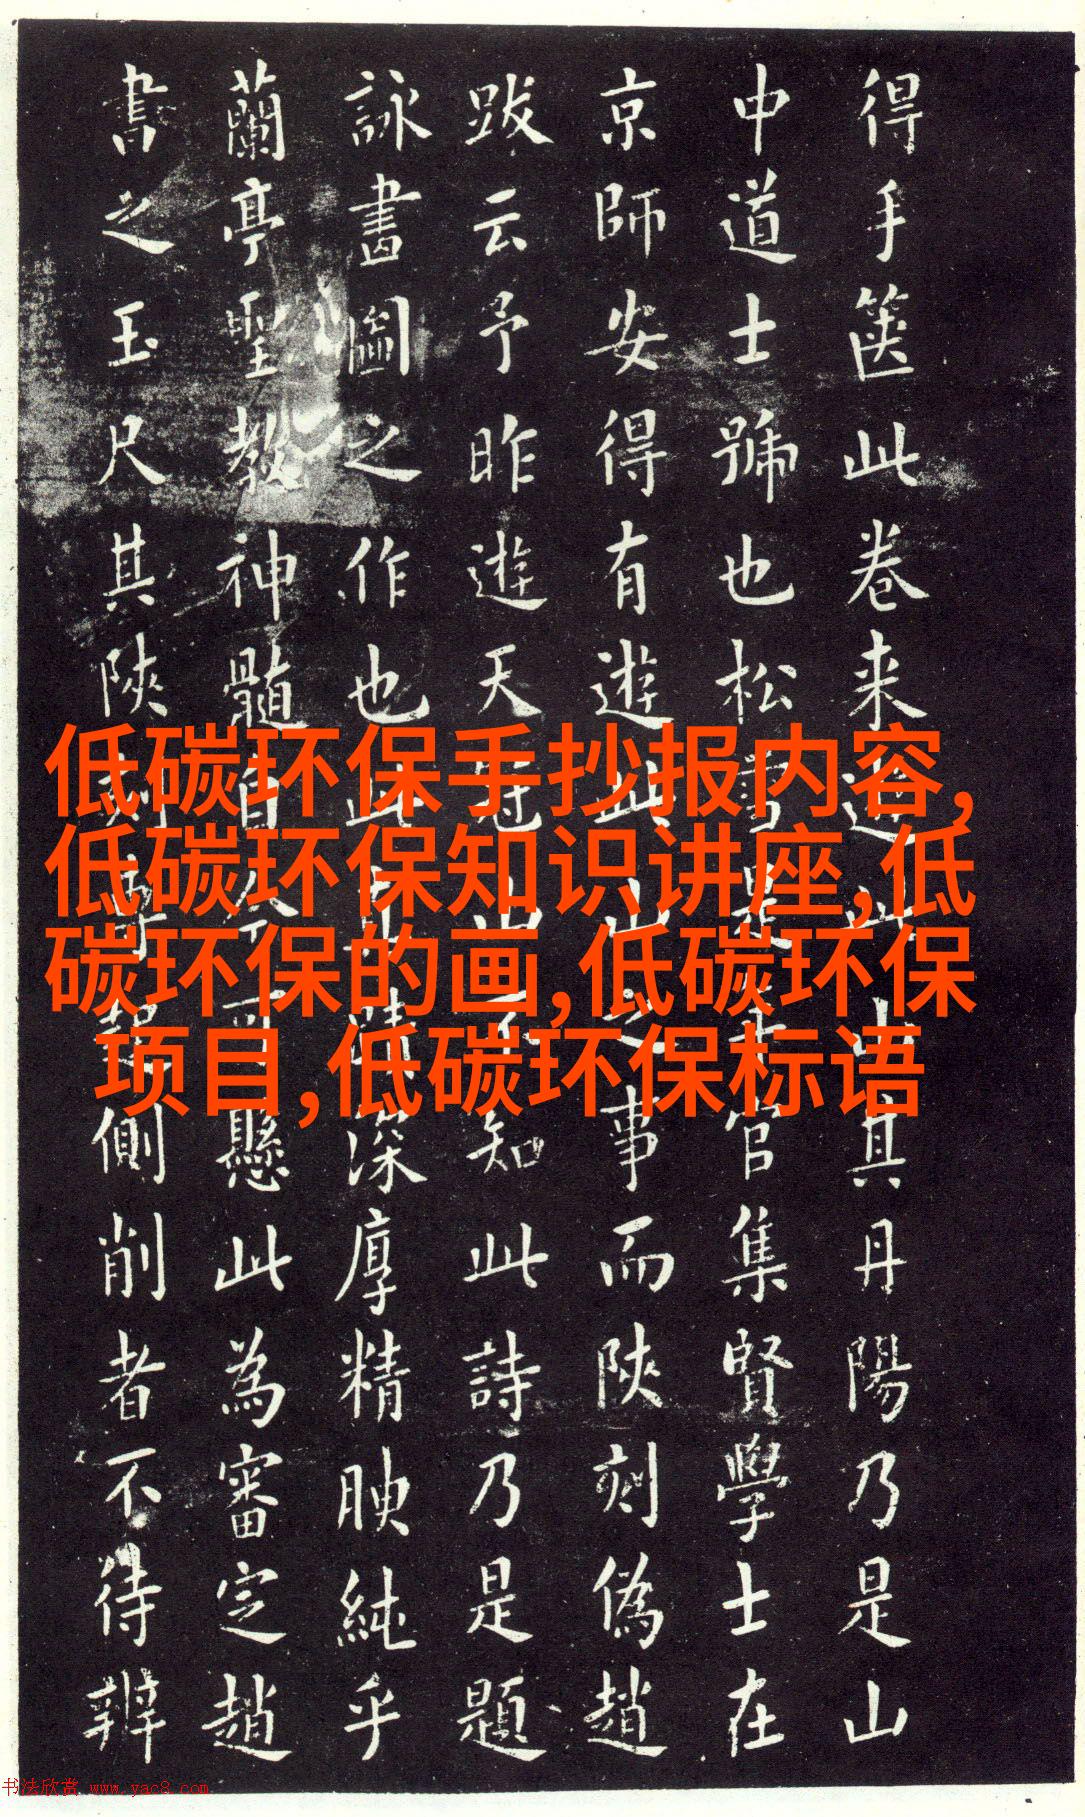 得手篋此卷来此山其丹陽乃是山
中道士號也松雪是年官集賢學士在
京師安得有遊此山之事而陝刻偽趙
跋云予昨遊天冠山不知此詩乃是題
詠畫圖之作也此深厚精腴純乎
蘭亭聖教神髓自可懸此為審定趙
書之玉尺其陝刻專趨側削者不待辨
低碳环保手抄报内容,
低碳环保知识讲座,低
碳环保的画,低碳环保
项目,低碳环保标语
书法欣赏 www.yac8.com